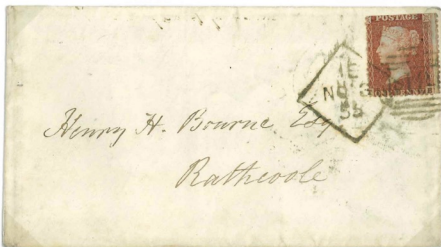 POSTAGE
1E
NO
55
Henry H. Bourne Esq
Rathcoole